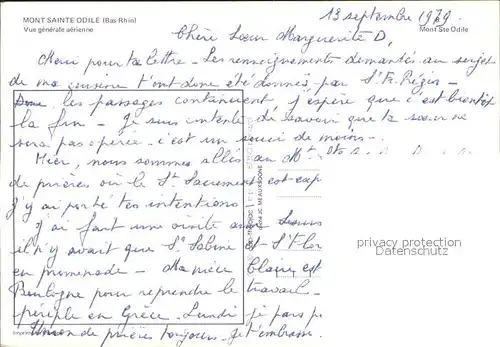 MONT SAINTE ODILE (Bas-Rhin)
Vue générale aérienne
13 septembre 1979
Mont Ste Odile
Chère Sœur Marguerite D,
Merci pour ta lettre - Les renseignements demandés au sujet
de ma cousine t'ont donc été donnés par Sr Fr. Régis -
les passages continuent, j'espère que c'est bientôt
la fin - Je suis contente de savoir que ta sœur ne
sera pas opérée - c'est un souci de moins -
Hier, nous sommes allés au Mt Ste
de prières où le St Sacrement est exp
J'y ai porté tes intentions
J'ai fait une visite aux Sœurs
il n'y avait que Sr Sabine et Sr Flor
en promenade - Ma nièce Claire est
Boulogne pour reprendre le travail -
périple en Grèce. Lundi je pars p
Union de prières toujours. Je t'embrasse.
privacy protection
Datenschutz